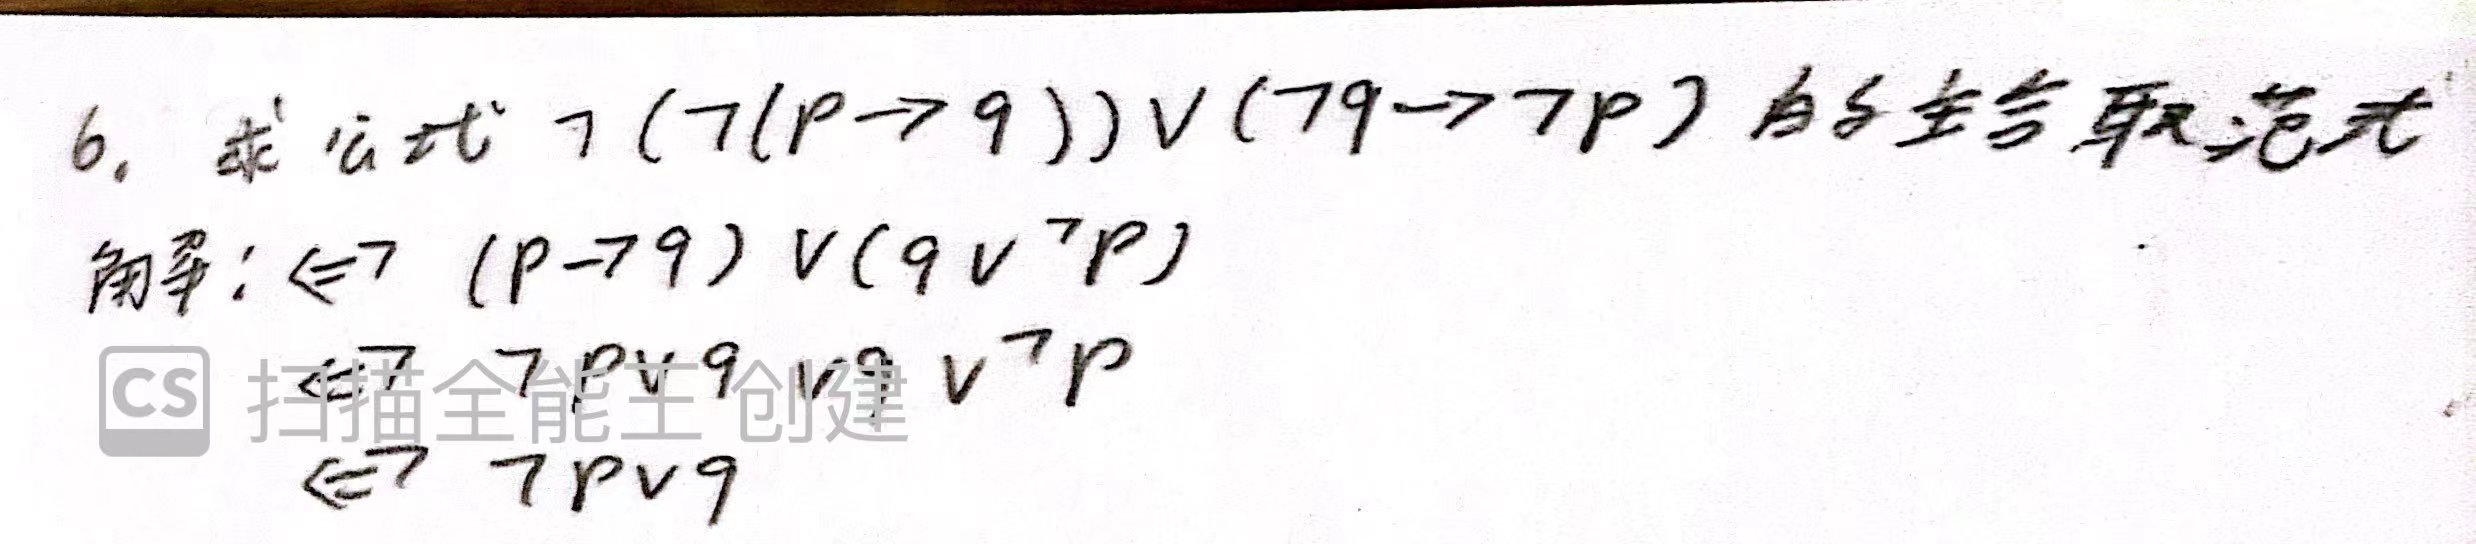 6. 求公式 ¬(¬(p→q))∨(¬q→¬p) 的主合取范式
解: <=> (p→q) ∨(q∨¬p)
<=> ¬p∨q∨q∨¬p
CS 扫描全能王 创建
<=> ¬p∨q